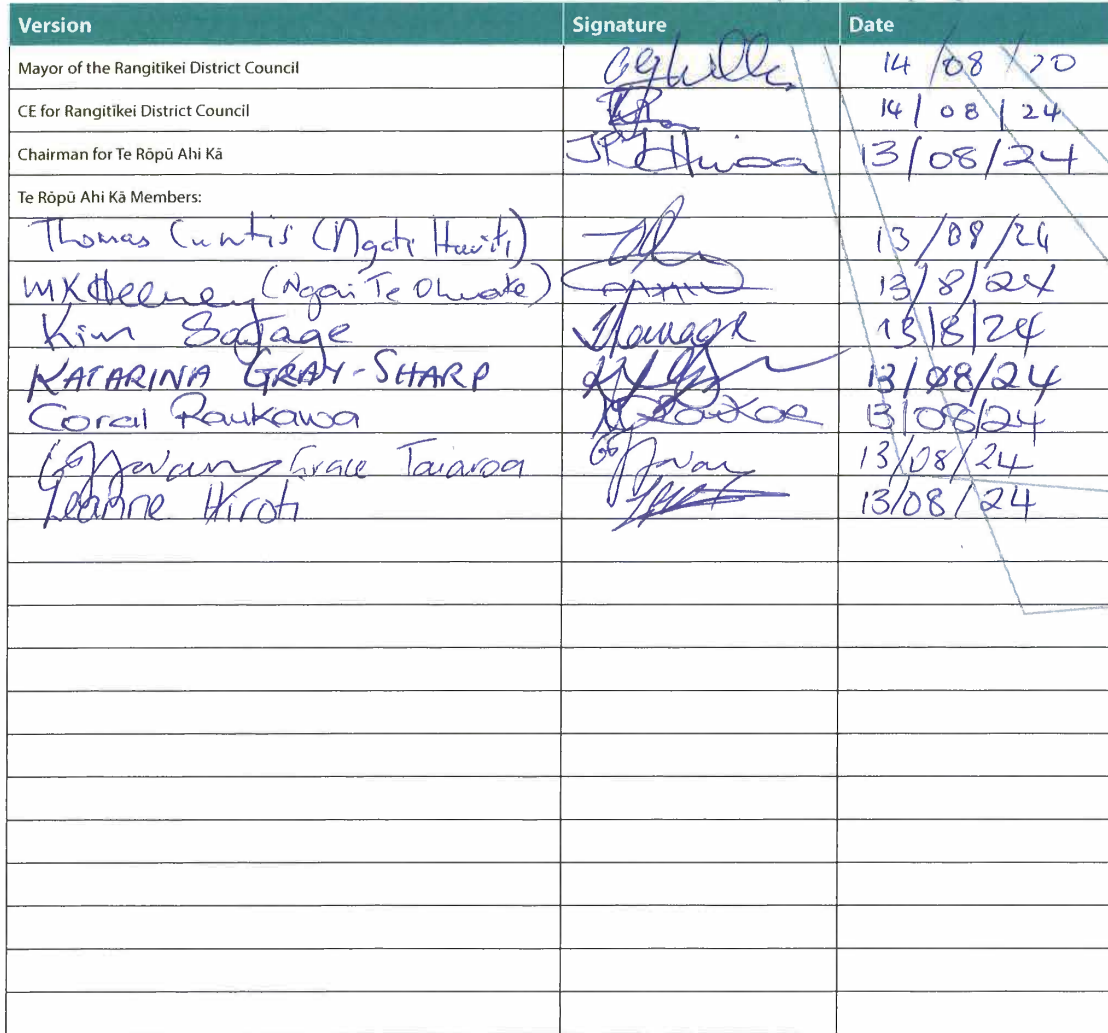 Version Signature Date
Mayor of the Rangitīkei District Council 14/08/20
CE for Rangitīkei District Council 14/08/24
Chairman for Te Rōpū Ahi Kā 13/08/24
Te Rōpū Ahi Kā Members:
Thomas Curtis (Ngati Hauiti) 13/08/24
MKHeeney (Ngai Te Ohuake) 13/8/24
Kim Savage 13/8/24
KATARINA GRAY-SHARP 13/08/24
Coral Raukawa 13/08/24
Grace Taiaroa 13/08/24
Leanne Hiroti 13/08/24